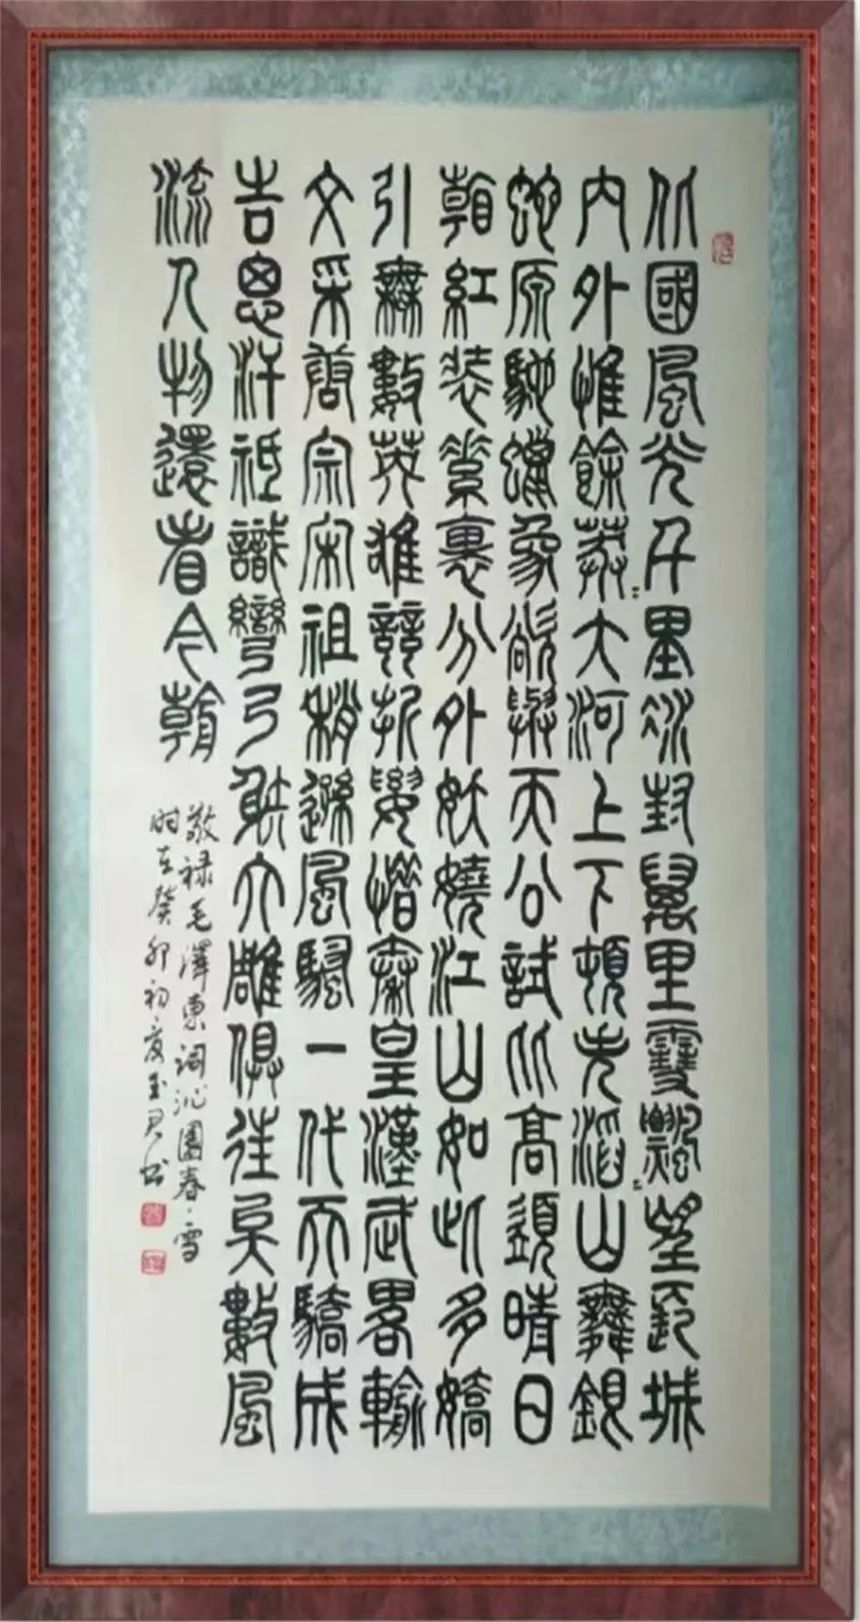 北國風光千里冰封萬里雪飄望長城
內外惟餘莽〻大河上下頓失滔〻山舞銀
蛇原馳蠟象欲與天公試比高須晴日
看紅裝素裹分外妖嬈江山如此多嬌
引無數英雄競折腰惜秦皇漢武畧輸
文采唐宗宋祖稍遜風騷一代天驕成
吉思汗祗識彎弓射大雕俱往矣數風
流人物還看今朝
敬禄毛澤東詞沁園春·雪
时在癸卯初夏玉君书